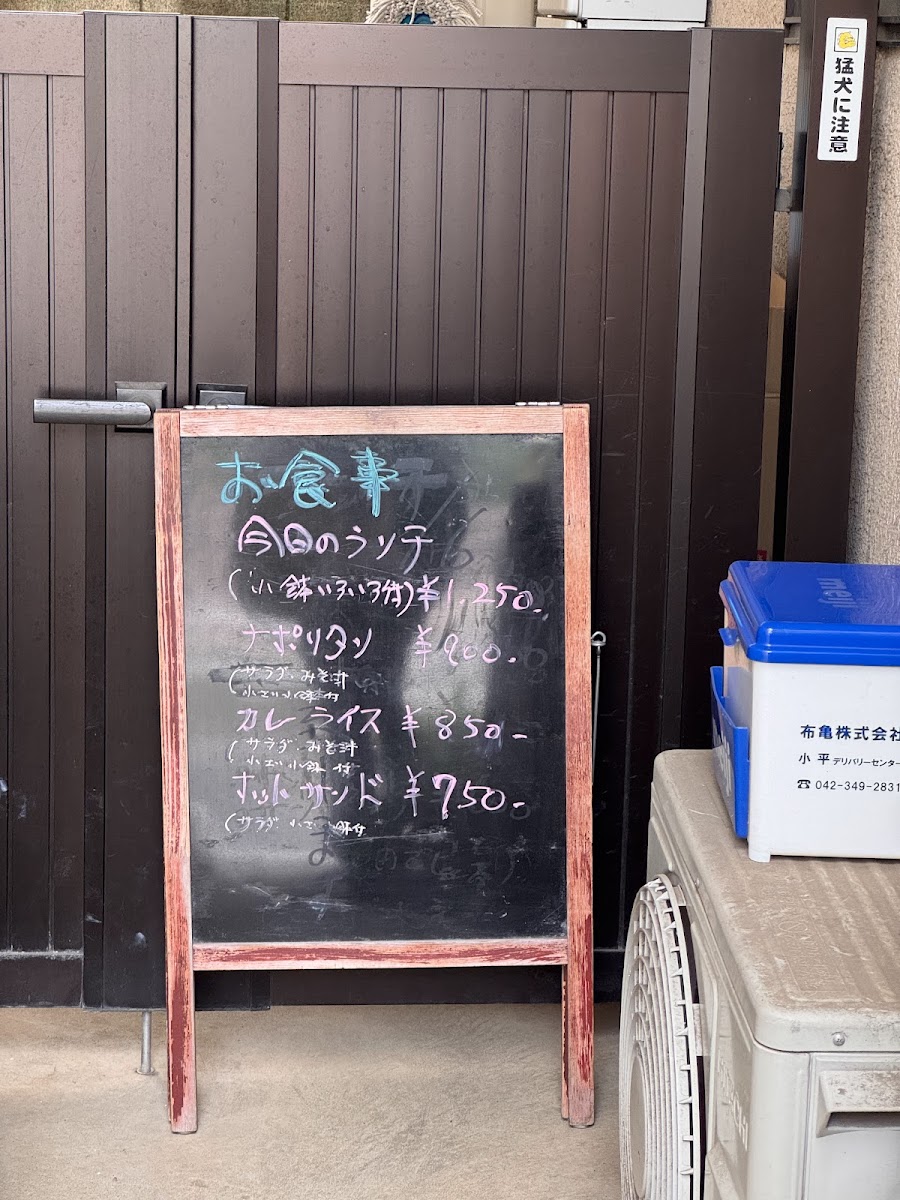 猛犬に注意
お食事
今日のランチ
(小鉢いろいろ付) ¥1,250-
ナポリタン ¥900-
(サラダ・みそ汁
小さい小鉢付
カレーライス ¥850-
(サラダ・みそ汁
小さい小鉢付
ホットサンド ¥750-
(サラダ 小さい小鉢付
meiji
布亀株式会社
小平デリバリーセンター
☎042-349-2831